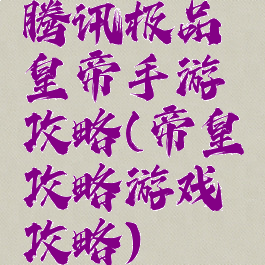 腾讯极品
皇帝手游
攻略(帝皇
攻略游戏
攻略)